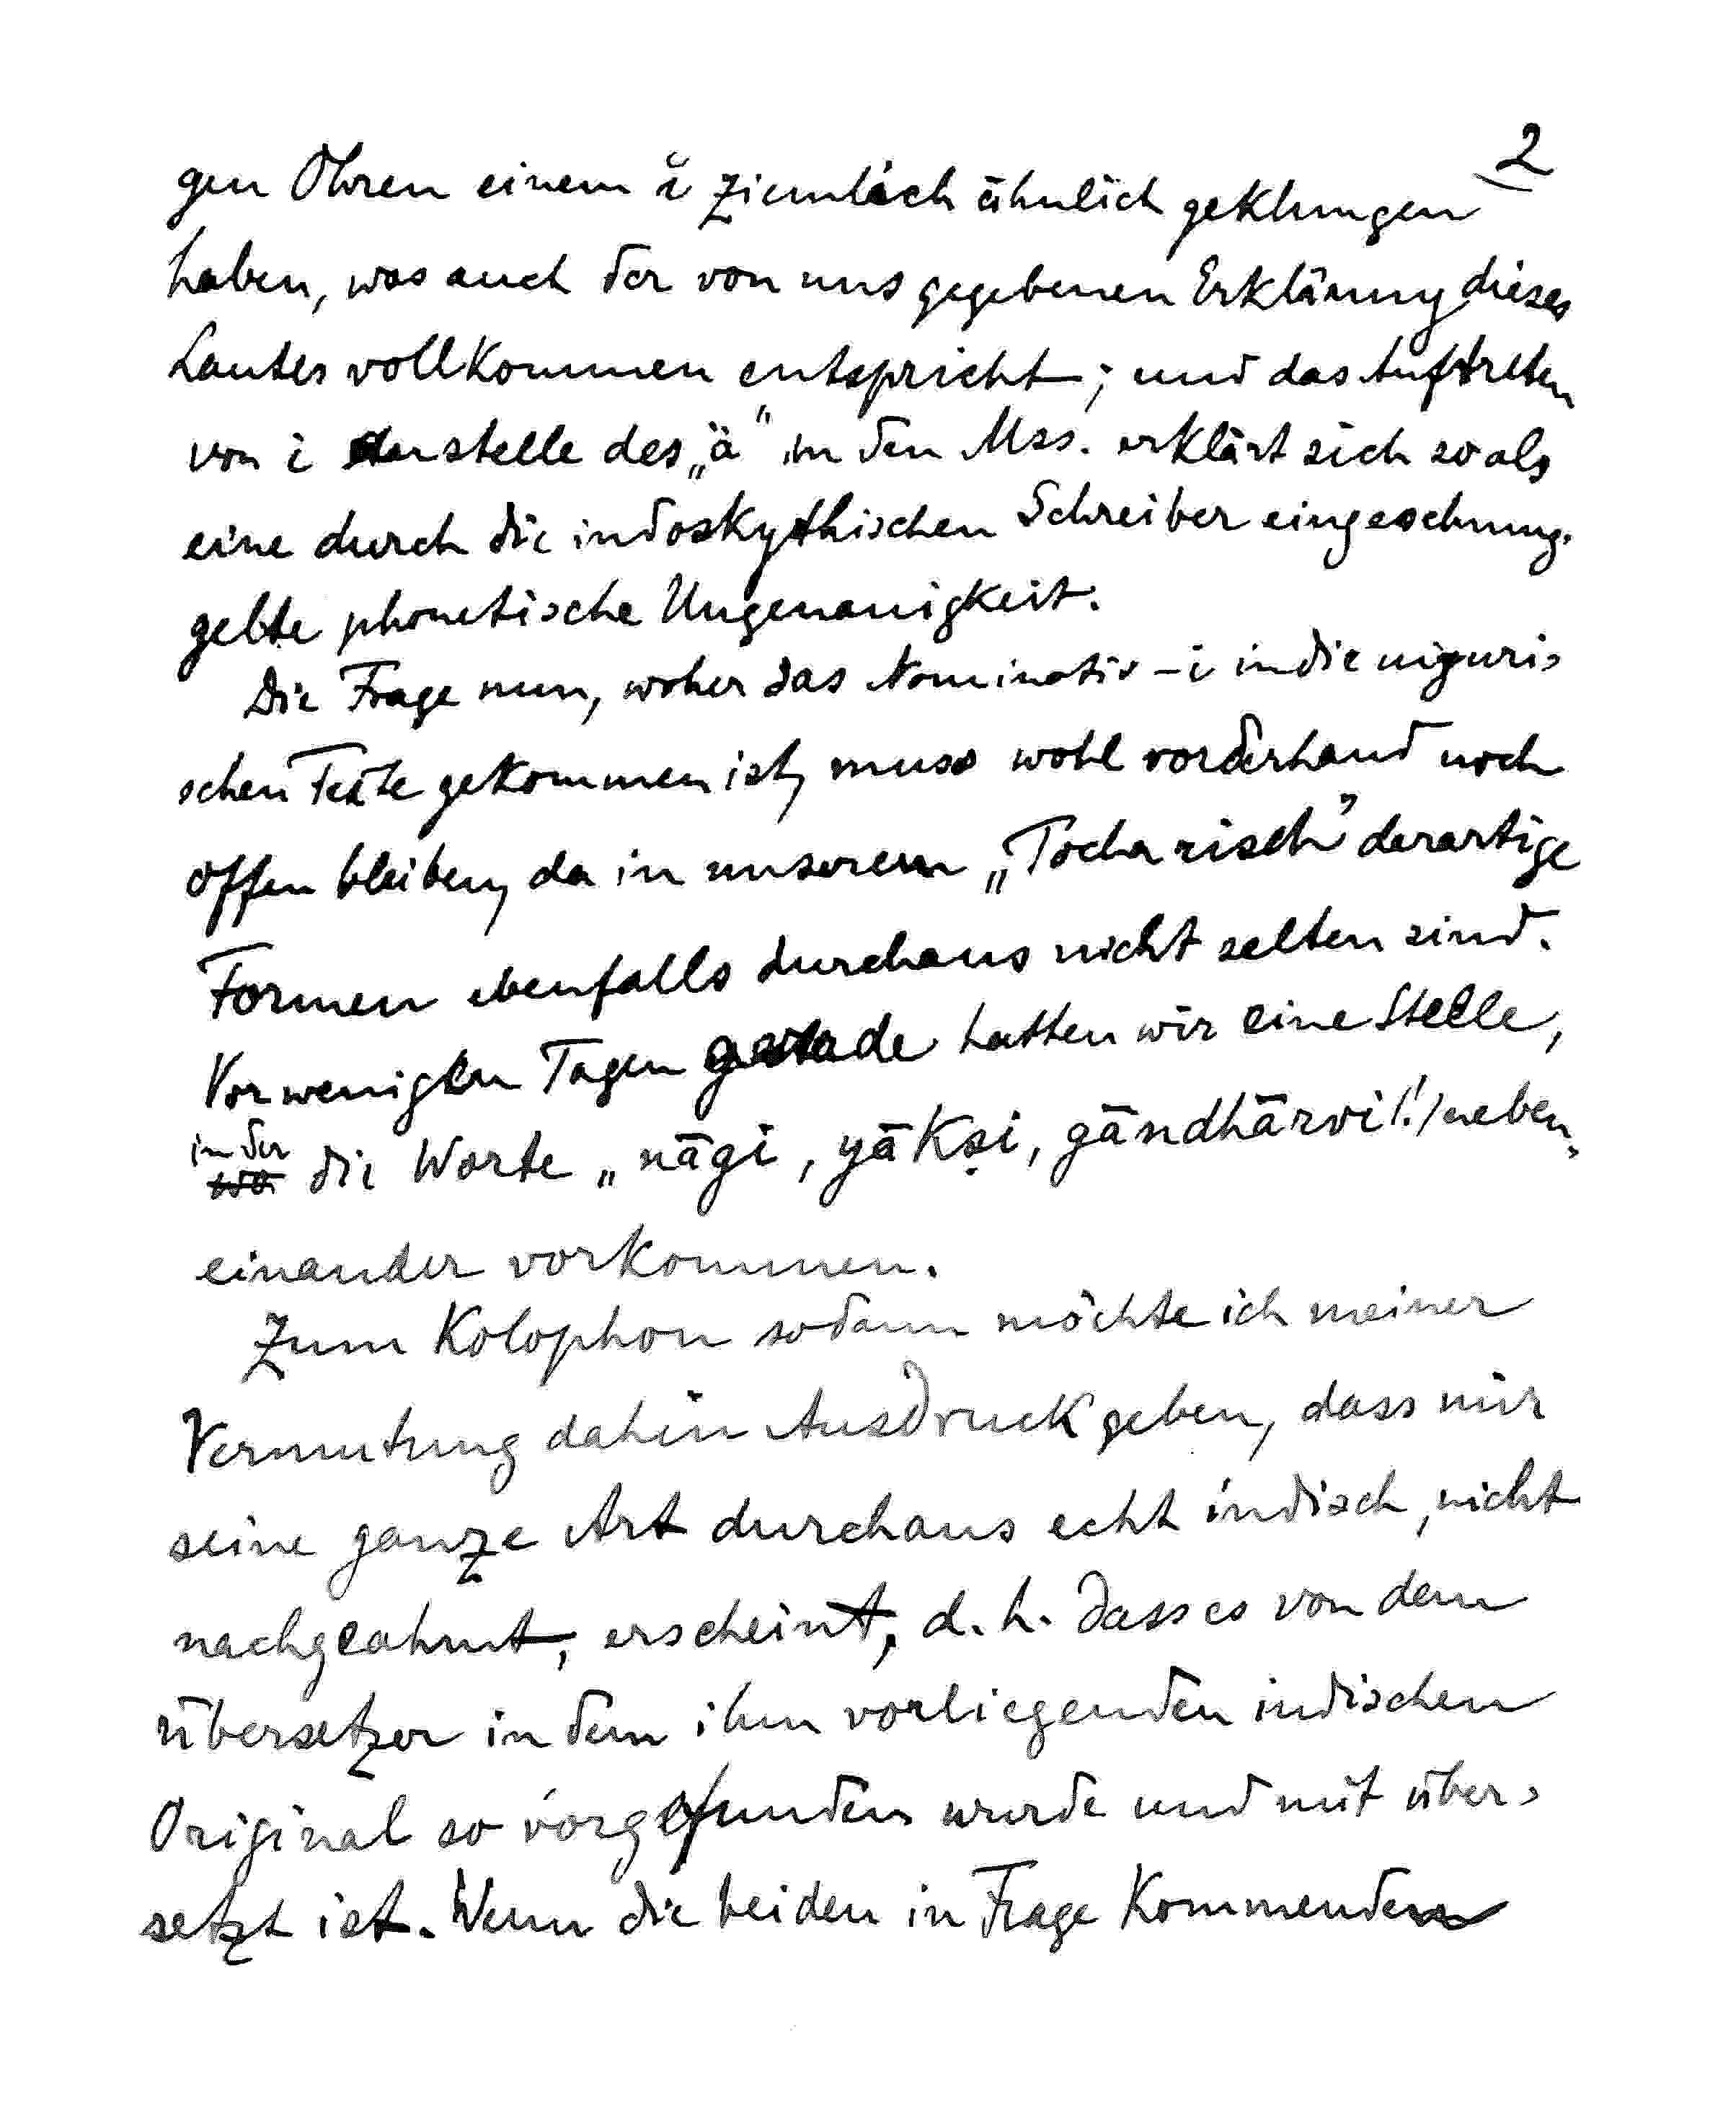 2
gen Ohren einem ĭ ziemlich ähnlich geklungen
haben, was auch der von uns gegebenen Erklärung dieses
Lautes vollkommen entspricht; und das Auftreten
von i anstelle des „ä“ in den Mss. erklärt sich so als
eine durch die indoskythischen Schreiber eingeschmug-
gelte phonetische Ungenauigkeit.
Die Frage nun, woher das Nominativ -i in die uiguri-
schen Texte gekommen ist, muss wohl vorderhand noch
offen bleiben, da in unserem „Tocharisch“ derartige
Formen ebenfalls durchaus nicht selten sind.
Vor wenigen Tagen gerade hatten wir eine Stelle,
in der
wo die Worte „nāgi, yākṣi, gāndhārvi(!) neben-
einander vorkommen.
Zum Kolophon sodann möchte ich meiner
Vermutung dahin Ausdruck geben, dass mir
seine ganze Art durchaus echt indisch, nicht
nachgeahmt, erscheint, d. h. dass es von dem
Übersetzer in dem ihm vorliegenden indischen
Original so vorgefunden wurde und mit über-
setzt ist. Wenn die beiden in Frage kommenden